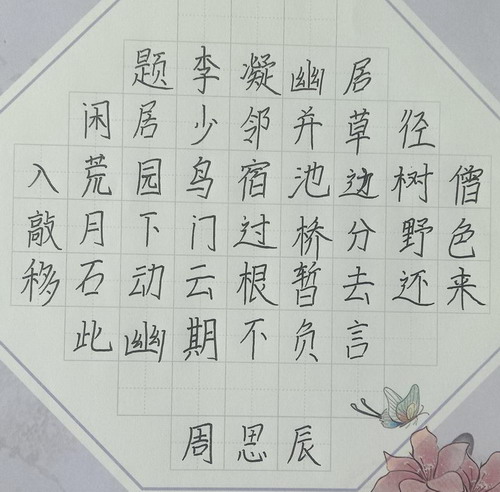 题李凝幽居
闲居少邻并草径
入荒园鸟宿池边树僧
敲月下门过桥分野色
移石动云根暂去还来
此幽期不负言
周思辰